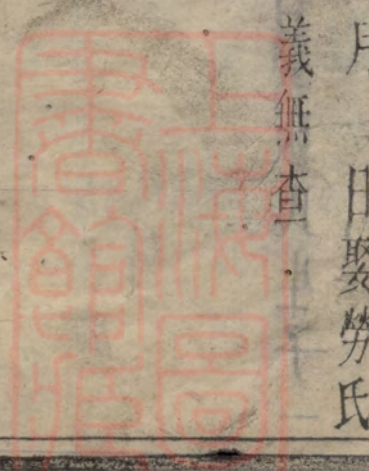 田娶勞氏
義無查
上海圖
書館藏